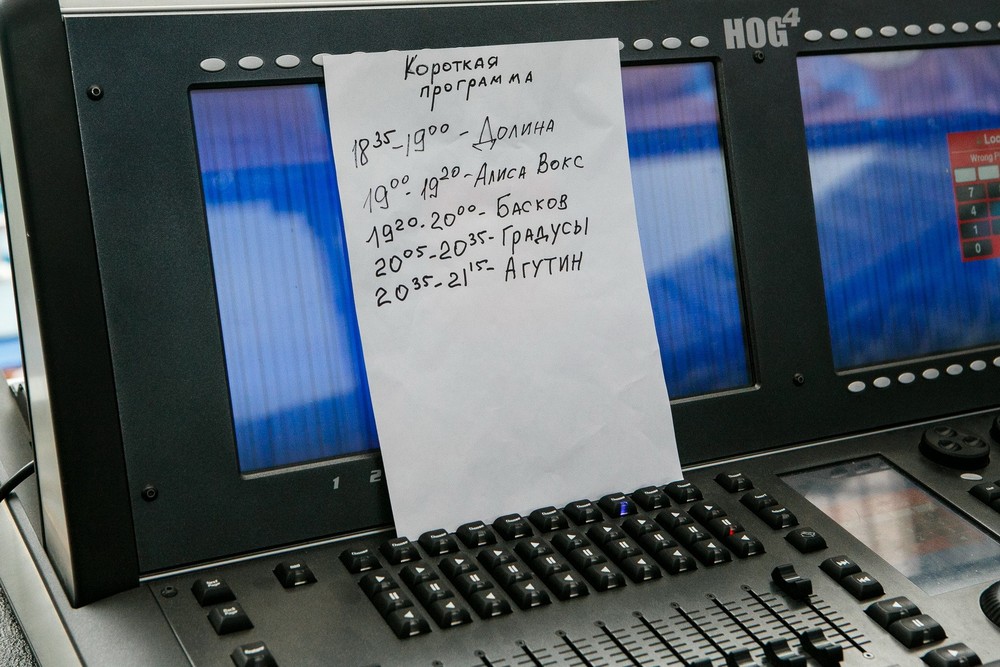 HOG4
Короткая
программа
18 35 - 19 00 - Долина
19 00 - 19 20 - Алиса Вокс
19 20 - 20 00 - Басков
20 05 - 20 35 - Градусы
20 35 - 21 15 - Агутин
Loc
Wrong
7
4
1
0
1 2